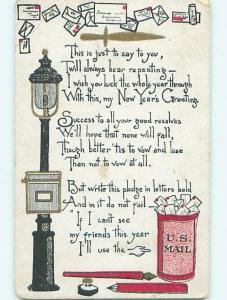 This is just to say to you,
Twill always bear repeating –
I wish you luck the whole year through
With this, my New Year's Greeting.
Success to all your good resolves
We'll hope that none will fail,
Though better 'tis to vow and lose
Then not to vow at all.
But write this pledge in letters bold
And in it do not fail –
"If I can't see
my friends this year
I'll use the
U.S.
MAIL